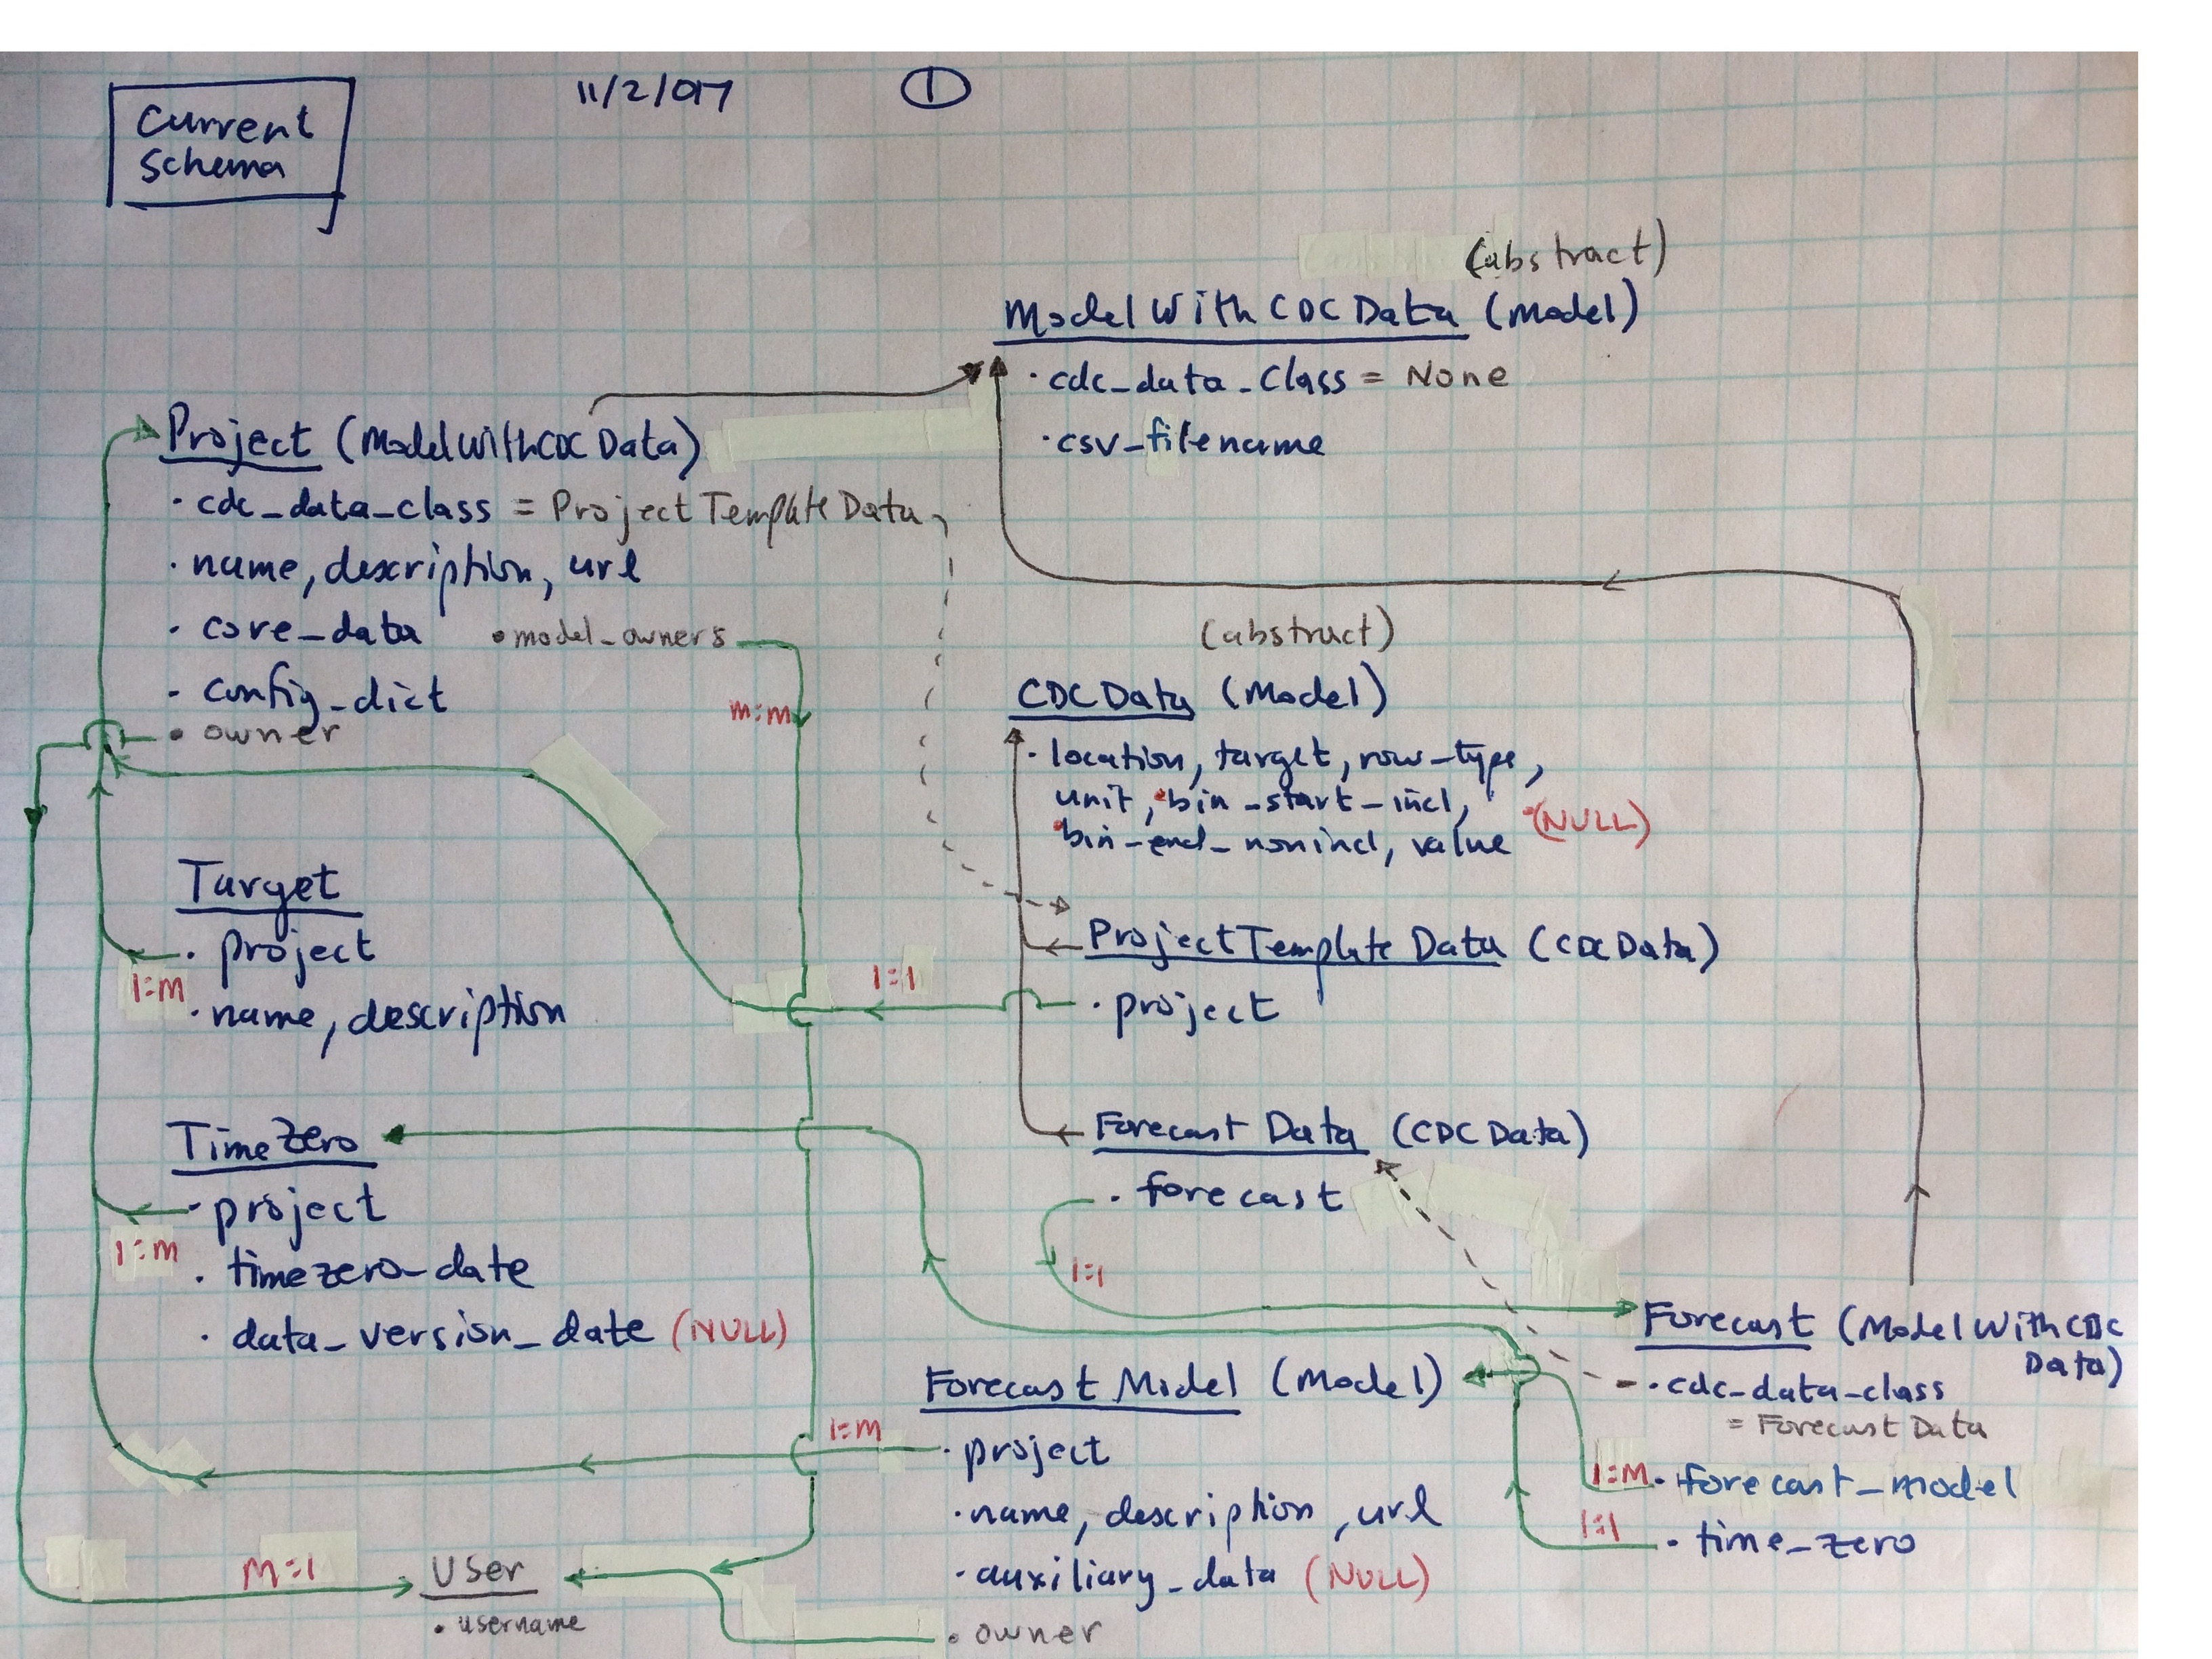 Current
Schema
11/2/017
1
(abstract)
ModelWithCDCData (Model)
· cdc_data_class = None
· csv_filename
Project (ModelWithCDCData)
· cdc_data_class = ProjectTemplateData
· name, description, url
· core_data
• model_owners
· config_dict
• owner
m:m
(abstract)
CDCData (Model)
· location, target, row_type,
unit, bin_start_incl,
bin_end_nonincl, value
(NULL)
Target
· project
1:m
· name, description
ProjectTemplateData (CDCData)
1:1
· project
TimeZero
· project
1:m
· timezero_date
· data_version_date (NULL)
ForecastData (CDCData)
· forecast
1:1
Forecast (ModelWithCDC
Data)
· cdc_data_class
= ForecastData
1:M
· forecast_model
1:1
· time_zero
ForecastModel (Model)
1:M
· project
· name, description, url
· auxiliary_data (NULL)
• owner
M:1
User
• username